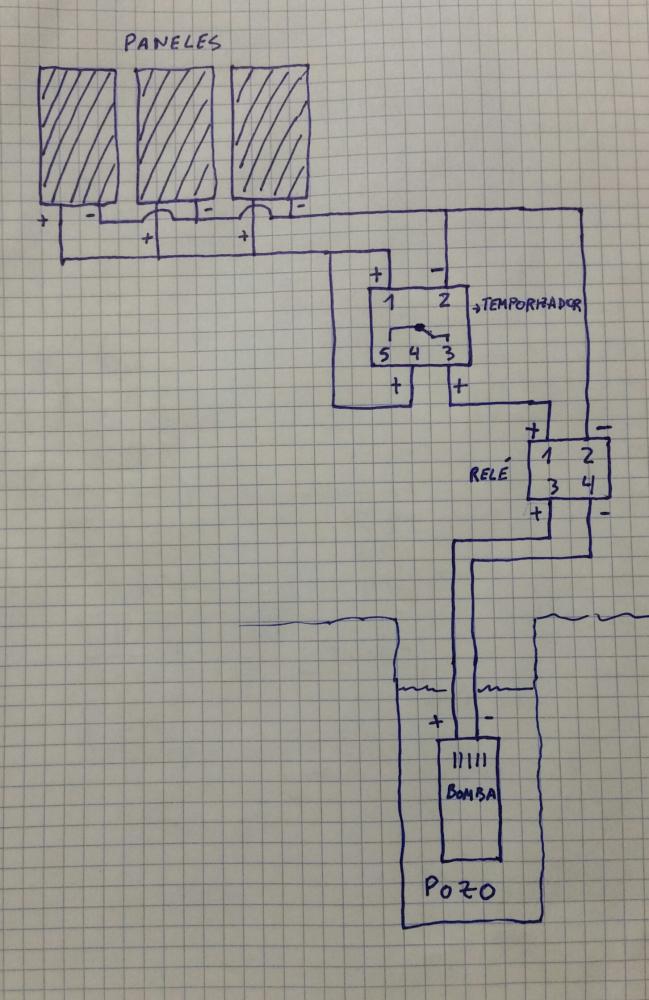 PANELES
+ - + - + -
+ -
1 2
→TEMPORIZADOR
5 4 3
+ +
+ -
1 2
RELÉ
3 4
+ -
+ -
BOMBA
POZO